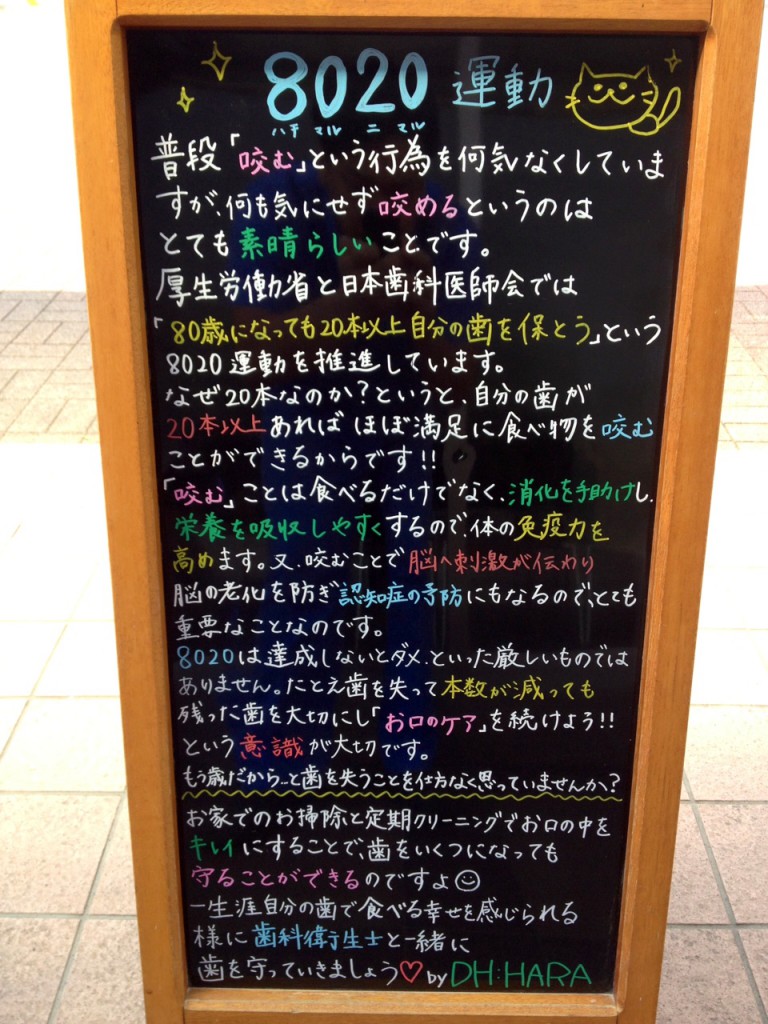 8020 運動
ハチ マル ニ マル
普段「咬む」という行為を何気なくしていま
すが、何も気にせず咬めるというのは
とても素晴らしいことです。
厚生労働省と日本歯科医師会では
「80歳になっても20本以上自分の歯を保とう」という
8020運動を推進しています。
なぜ20本なのか?というと、自分の歯が
20本以上あればほぼ満足に食べ物を咬む
ことができるからです!!
「咬む」ことは食べるだけでなく、消化を手助けし、
栄養を吸収しやすくするので、体の免疫力を
高めます。又、咬むことで脳へ刺激が伝わり
脳の老化を防ぎ認知症の予防にもなるので、とても
重要なことなのです。
8020は達成しないとダメ、といった厳しいものでは
ありません。たとえ歯を失って本数が減っても
残った歯を大切にし「お口のケア」を続けよう!!
という意識が大切です。
もう歳だから…と歯を失うことを仕方なく思っていませんか?
お家でのお掃除と定期クリーニングでお口の中を
キレイにすることで、歯をいくつになっても
守ることができるのですよ☺
一生涯自分の歯で食べる幸せを感じられる
様に歯科衛生士と一緒に
歯を守っていきましょう♡ by DH:HARA